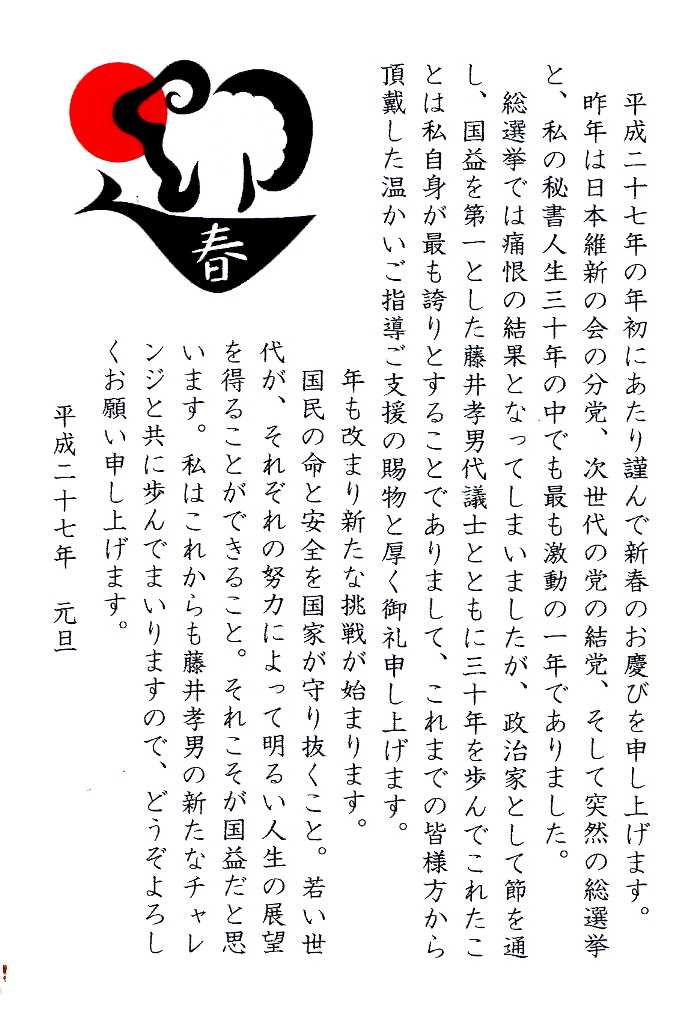 平成二十七年の年初にあたり謹んで新春のお慶びを申し上げます。
昨年は日本維新の会の分党、次世代の党の結党、そして突然の総選挙
と、私の秘書人生三十年の中でも最も激動の一年でありました。
総選挙では痛恨の結果となってしまいましたが、政治家として節を通
し、国益を第一とした藤井孝男代議士とともに三十年を歩んでこれたこ
とは私自身が最も誇りとすることでありまして、これまでの皆様方から
頂戴した温かいご指導ご支援の賜物と厚く御礼申し上げます。
年も改まり新たな挑戦が始まります。
国民の命と安全を国家が守り抜くこと。若い世
代が、それぞれの努力によって明るい人生の展望
を得ることができること。それこそが国益だと思
います。私はこれからも藤井孝男の新たなチャレ
ンジと共に歩んでまいりますので、どうぞよろし
くお願い申し上げます。
平成二十七年 元旦
春